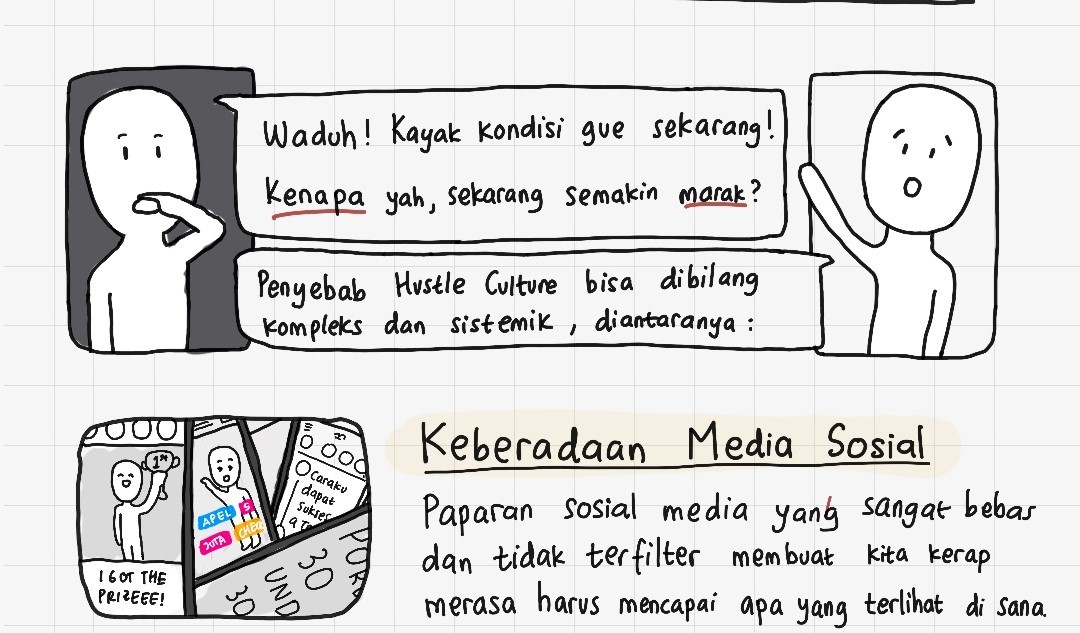 Waduh! Kayak kondisi gue sekarang!
Kenapa yah, sekarang semakin marak?
Penyebab Hustle Culture bisa dibilang
kompleks dan sistemik, diantaranya:
Keberadaan Media Sosial
Paparan sosial media yang sangat bebas
dan tidak terfilter membuat kita kerap
merasa harus mencapai apa yang terlihat di sana
1st
I GOT THE
PRIZEEE!
APEL 5
JUTA CHECK
Caraku
dapat
sukses
30
UND
30